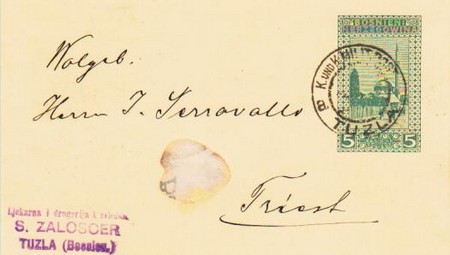 BOSNIEN-
HERZEGOWINA
K. UND K. MILIT. POST
B
TUZLA
5 5
Wolgeb.
Herrn I. Serravallo
Triest
Ljekarna i drogerija k
S. ZALOSCER
TUZLA (Bosnien.)